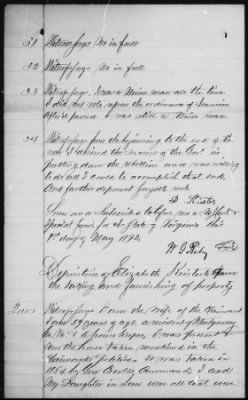 31 Witness says No in full
32 Witness says No in full
33 Witness says I was a Union man all the time
I did not vote upon the ordinance of Secession
After it passed I was still a Union man.
34 Witness says from the beginning to the end of the
war I desired the success of the Govt in
putting down the rebellion and was willing
to do all I could to accomplish that end
And further deponent sayeth not
Sworn and Subscribed to before me
Special Com for the State of Virginia this
1st day of May 1872.
W. G. Riley
Deposition of Elizabeth
the taking and furnishing of property
Ques Witness says I am the wife of the Claimant
I am 59 years of age a resident of Montgomery
Co Va I was present &
saw the horse taken
It was taken in
1864 by Gen command I and
My Daughter in Law were all that were